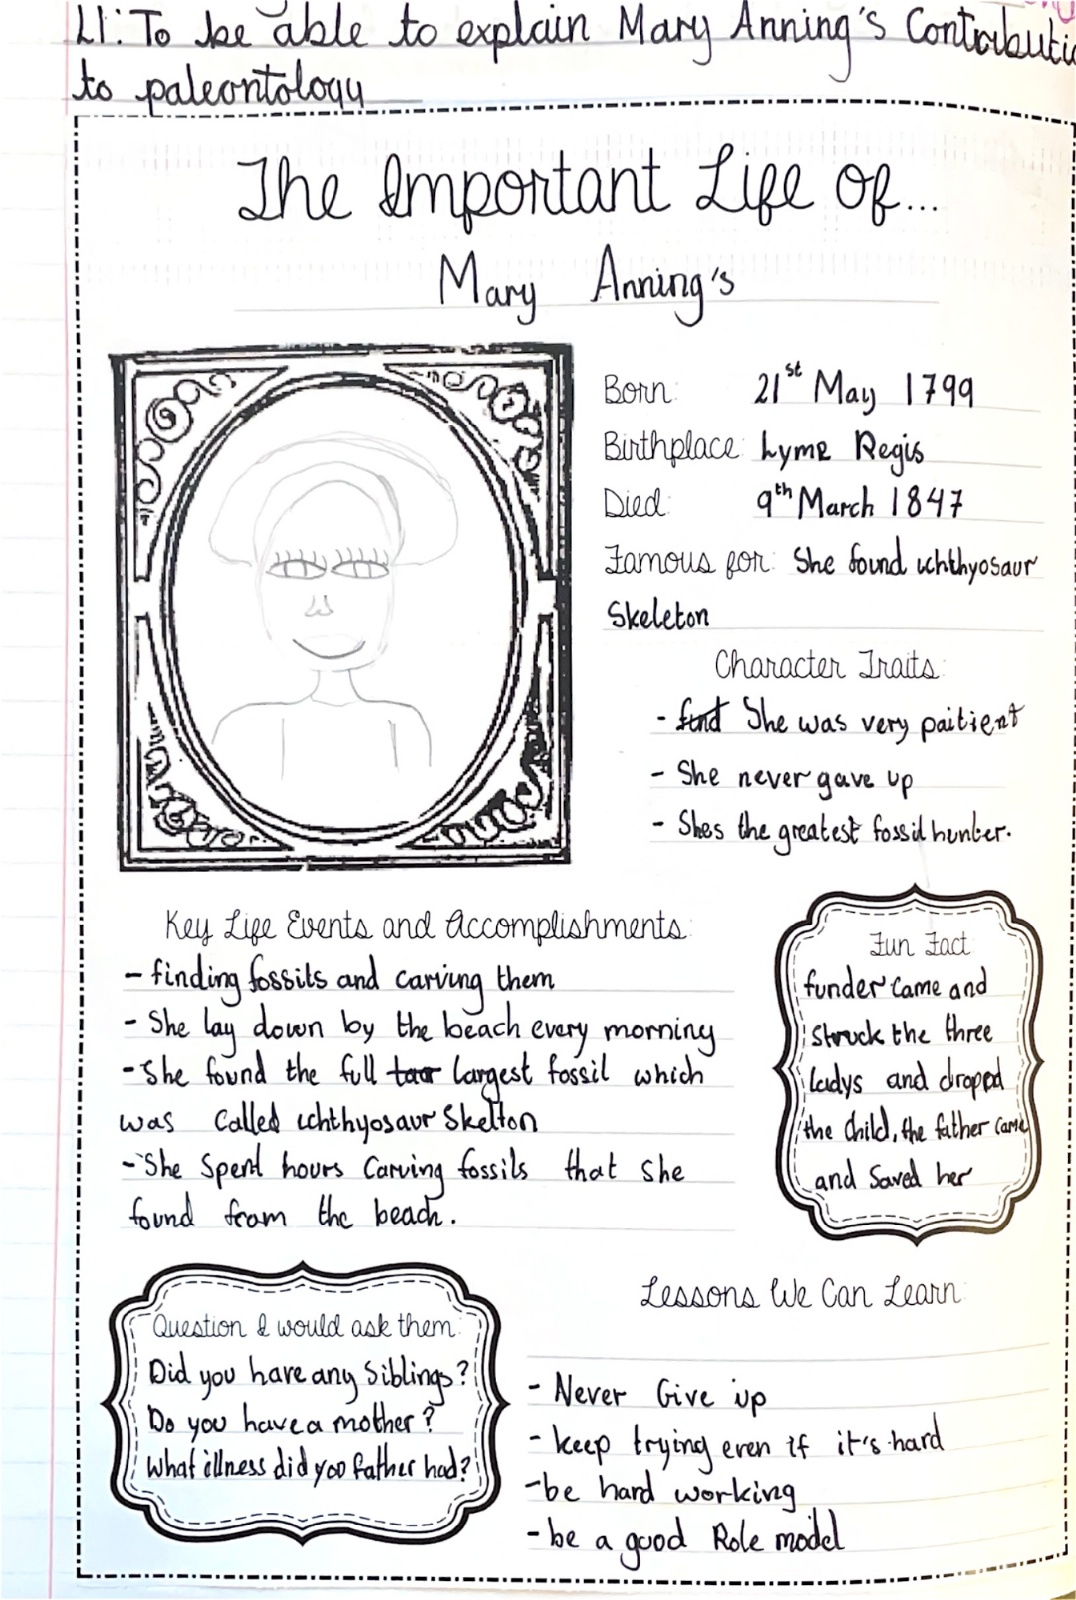 LI: To be able to explain Mary Anning's Contributi
to paleontology
The Important Life Of...
Mary Anning's
Born: 21st May 1799
Birthplace: Lyme Regis
Died: 9th March 1847
Famous for: She found ichthyosaur
Skeleton
Character Traits:
- find She was very paitient
- She never gave up
- Shes the greatest fossil hunter.
Key Life Events and Accomplishments:
- finding fossils and carving them
- She lay down by the beach every morning
- She found the full largest fossil which
was called ichthyosaur Skelton
- She Spent hours Carving fossils that she
found from the beach.
Fun Fact
funder came and
struck the three
ladys and droped
the child, the father came
and Saved her
Question I would ask them:
Did you have any Siblings?
Do you have a mother?
What illness did you father had?
Lessons We Can Learn:
- Never Give up
- keep trying even if it's hard
- be hard working
- be a good Role model